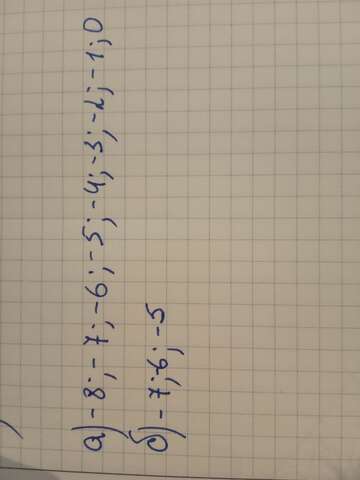 а) -8; -7; -6; -5; -4; -3; -2; -1; 0
б) -7; 6; -5